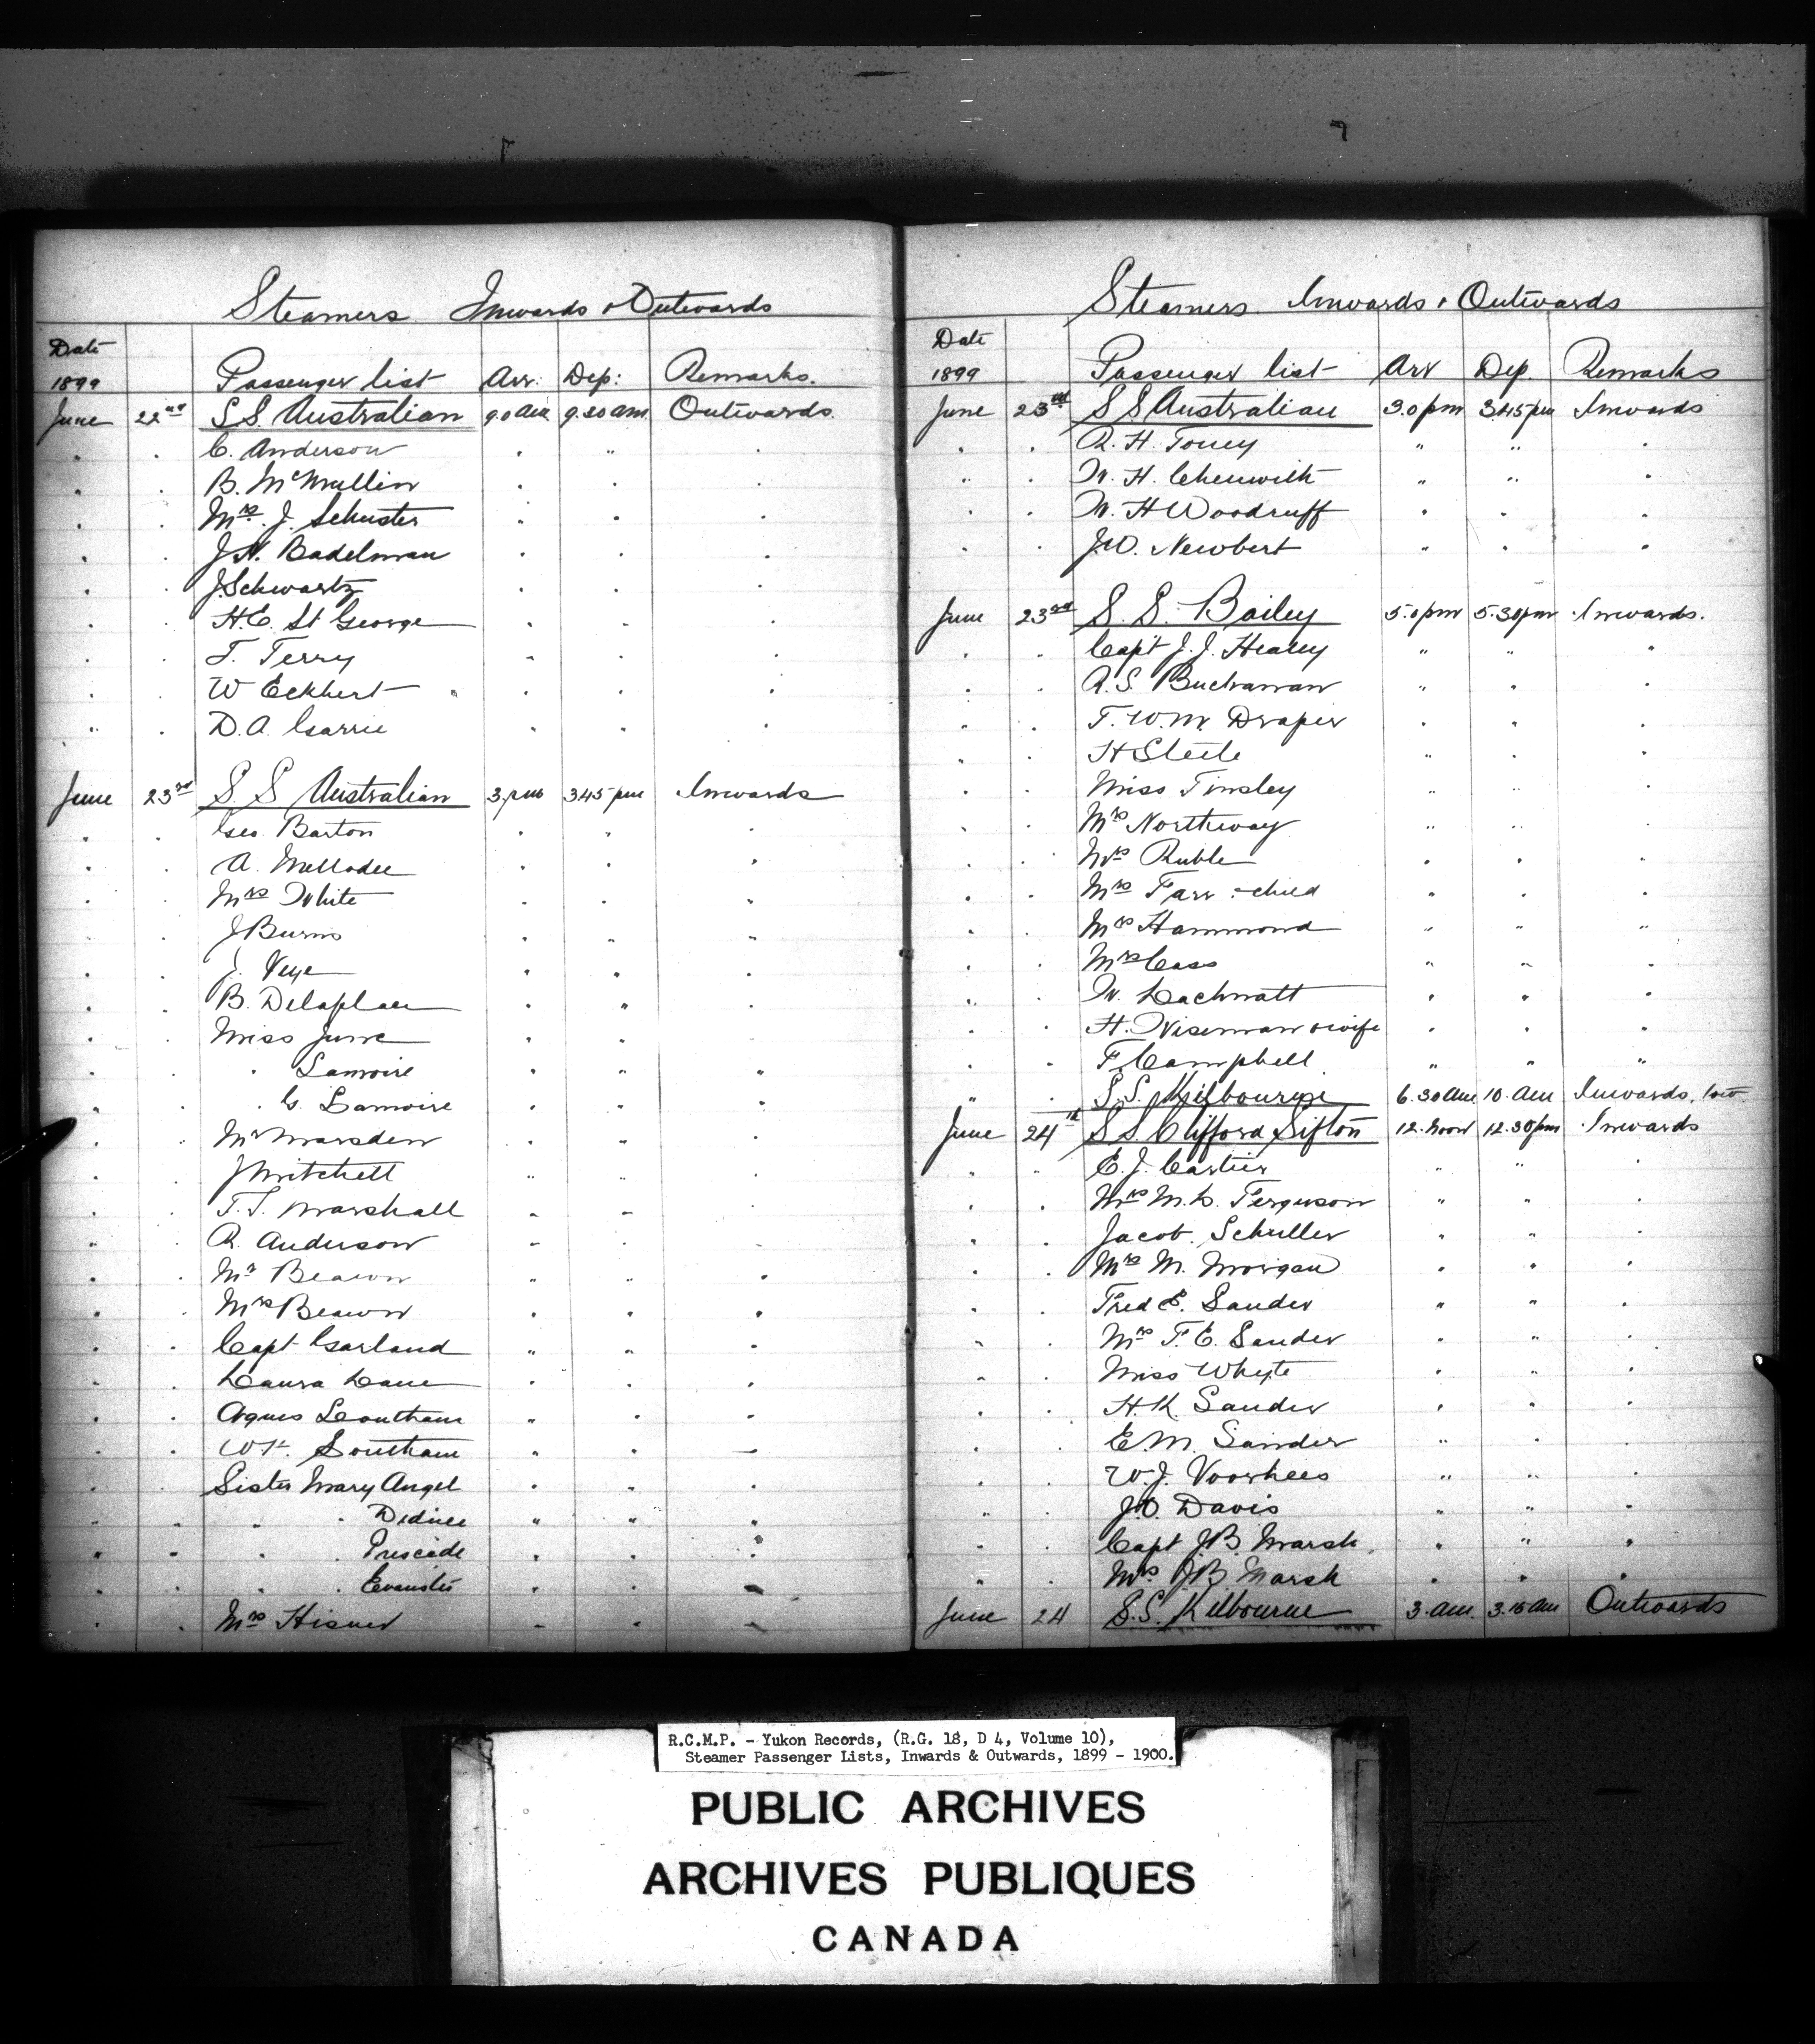 Steamers Inwards & Outwards
Date
1899 Passenger list Arr: Dep: Remarks.
June 22nd S.S. Australian 9.0 am 9.20 am. Outwards
" " C. Anderson " " "
" " B. McMullin " " "
" " Mrs. J. Schuster " " "
" " J.N. Badelman " " "
" " J. Schwartz " " "
" " H.E. St George " " "
" " T. Terry " " "
" " W Eckhert " " "
" " D.A. Garrie " " "
June 23rd S.S Australian 3.pm 3.45 pm Inwards
" " Geo. Barton " " "
" " A. " " "
" " Mrs White " " "
" " J Burns " " "
" " J. Veye " " "
" " B. Delaplace " " "
" " Miss June " " "
" " " Lamoire " " "
" " " G. Lamoire " " "
" " Mr Marsden " " "
" " J Mitchell " " "
" " T.T. Marshall " " "
" " R. Anderson " " "
" " Mr Beacon " " "
" " Mrs Beacon " " "
" " Capt Garland " " "
" " Laura Lane " " "
" " Agnes " " "
" " Southam " " "
" " Sister Mary Angel " " "
" " " " " " "
" " " " " " "
" " " " " " "
" " Mrs " " "
Steamers Inwards & Outwards
Date
1899 Passenger list Arr Dep. Remarks
June 23rd S.S Australian 3.0 pm 3.45 pm Inwards
" " R. H. Toney " " "
" " W. H. Chenwith " " "
" " W. H Woodruff " " "
" " J.W. Newbert " " "
June 23rd S.S. Bailey 5.0 pm 5.30 pm Inwards.
" " Capt J.J. Healey " " "
" " A.S. Buchanan " " "
" " T.W.M. Draper " " "
" " H Steele " " "
" " Miss Tinsley " " "
" " Mrs Northway " " "
" " Mrs Ruble " " "
" " Mrs Farr & child " " "
" " Mrs Hammond " " "
" " Mrs Cass " " "
" " W. Lachmatt " " "
" " H. Wiseman & wife " " "
" " F Campbell " " "
" " S.S. Kilbourne 6.30 am 10.am Inwards.
June 24th S.S. Clifford Sifton 12.Noon 12.30 pm Inwards
" " E.J. Cartier " " "
" " Mrs M.L. Ferguson " " "
" " Jacob. Schuller " " "
" " Mrs M. Morgan " " "
" " Fred E. Sander " " "
" " Mrs F.E. Sander " " "
" " Miss Whyte " " "
" " H.K. Sander " " "
" " E.M. Sander " " "
" " W.J. Voorhees " " "
" " J.O. Davis " " "
" " Capt J.B. Marsh. " " "
" " Mrs J.B. Marsh " " "
June 24 S.S. Kilbourne 3.am. 3.15 am Outwards
R.C.M.P. - Yukon Records, (R.G. 18, D 4, Volume 10),
Steamer Passenger Lists, Inwards & Outwards, 1899 - 1900.
PUBLIC ARCHIVES
ARCHIVES PUBLIQUES
CANADA